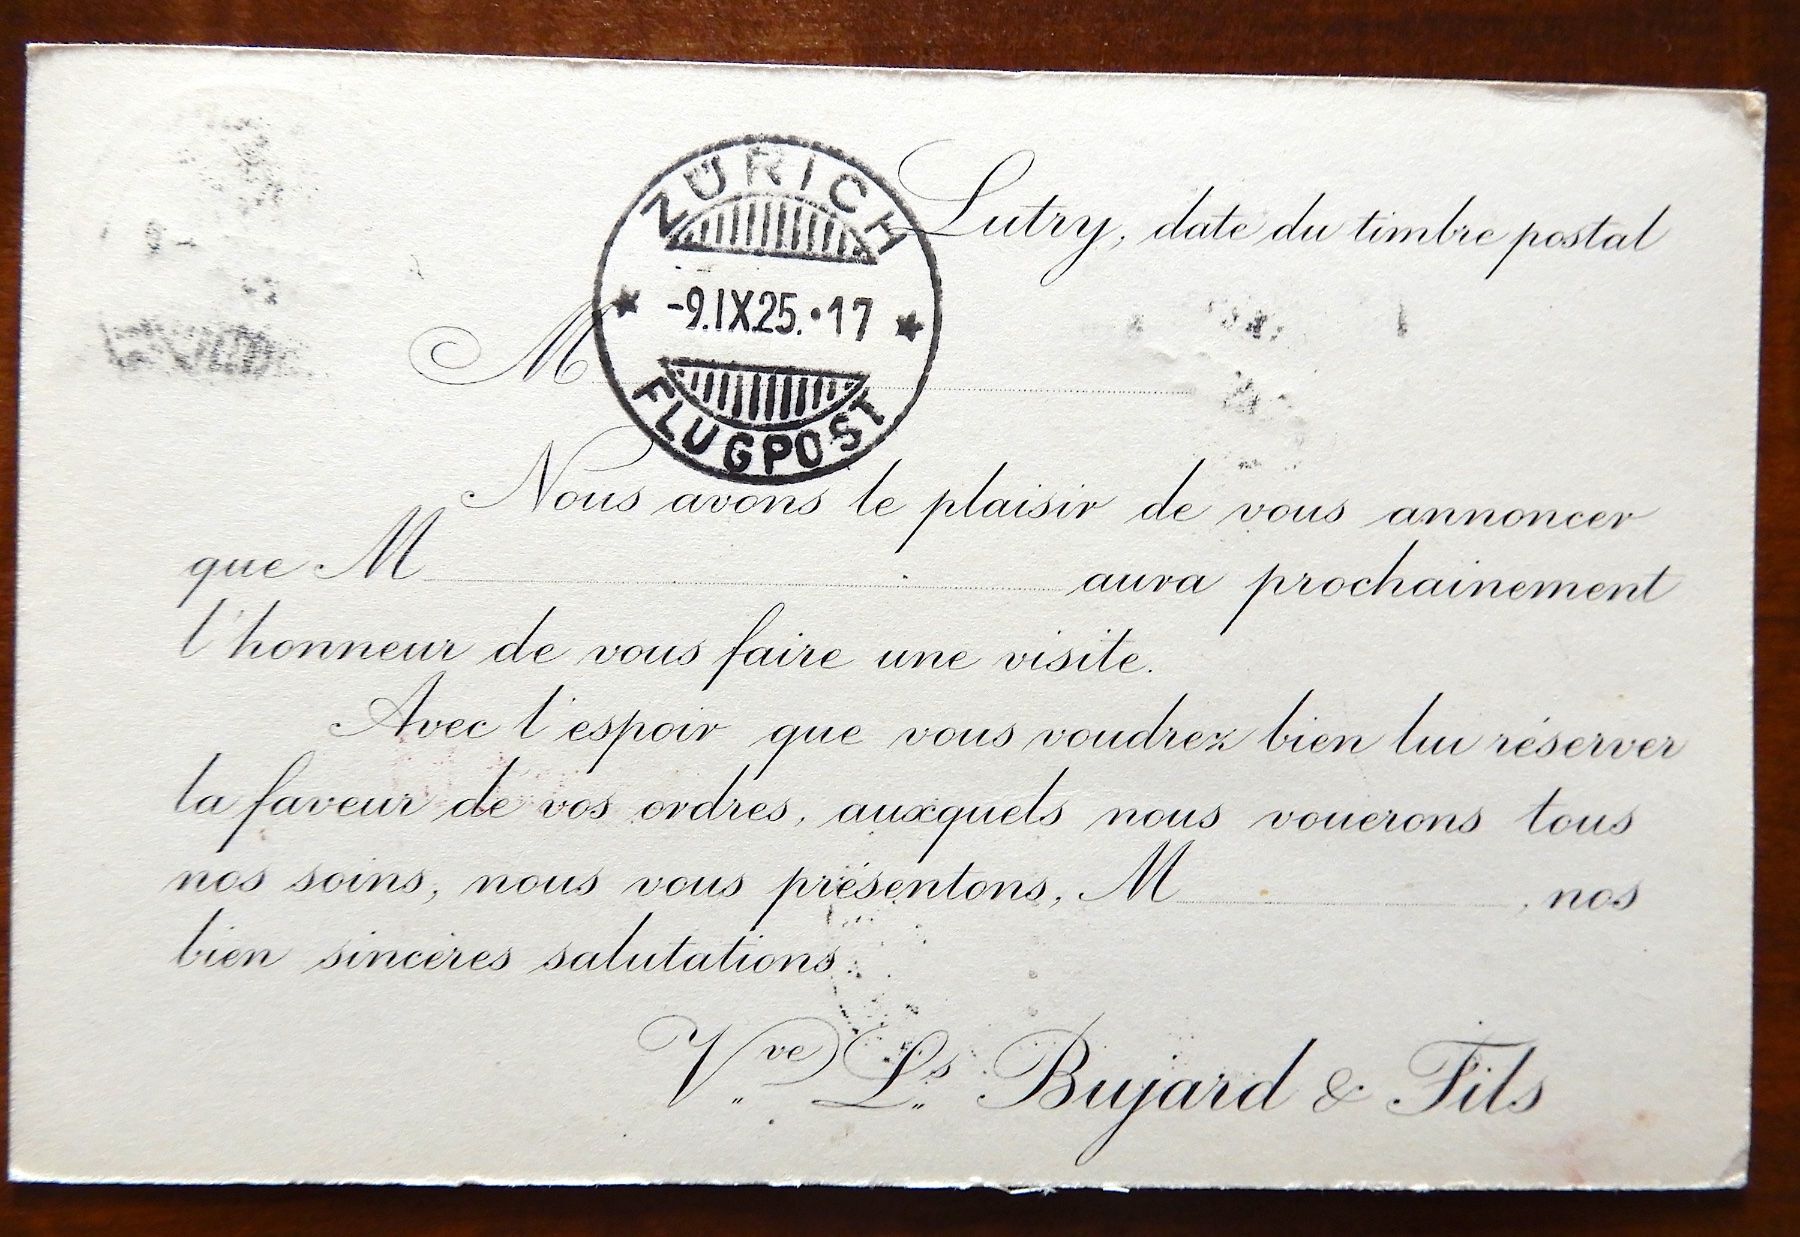 ZÜRICH
-9.IX.25.•17
FLUGPOST
Lutry, date du timbre postal
M
Nous avons le plaisir de vous annoncer
que M aura prochainement
l'honneur de vous faire une visite.
Avec l'espoir que vous voudrez bien lui réserver
la faveur de vos ordres, auxquels nous vouerons tous
nos soins, nous vous présentons, M , nos
bien sincères salutations.
Vve Ls Bujard & Fils